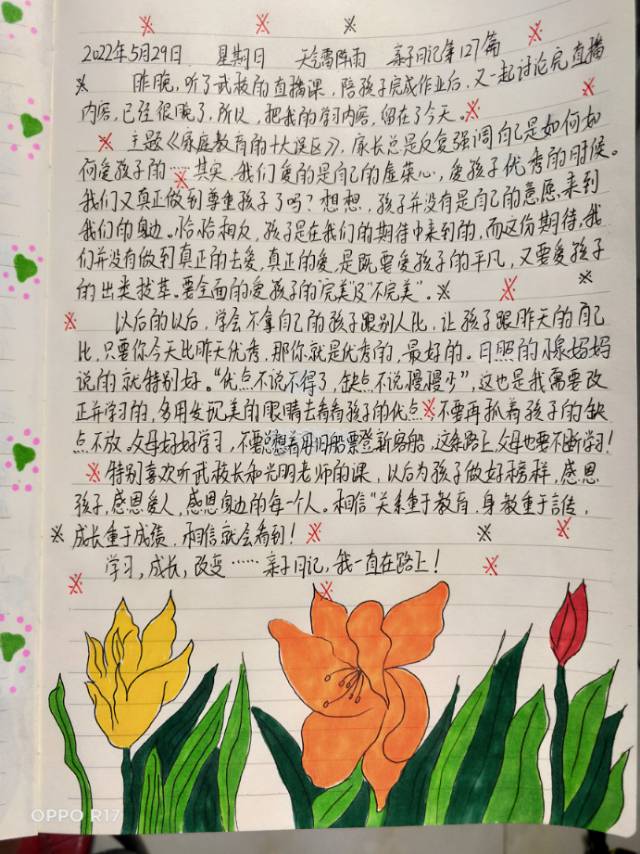 2022年5月29日 星期日 天气雷阵雨 亲子日记第127篇
昨晚，听了武校的直播课，陪孩子完成作业后，又一起讨论完直播
内容，已经很晚了，所以，把我的学习内容，留在了今天。
主题《家庭教育的十大误区》，家长总是反复强调自己是如何如
何爱孩子的……其实，我们爱的是自己的虚荣心，爱孩子优秀的时候。
我们又真正做到尊重孩子了吗？想想，孩子并没有是自己的意愿，来到
我们的身边。恰恰相反，孩子是在我们的期待中来到的，而这份期待，我
们并没有做到真正的去爱，真正的爱，是既要爱孩子的平凡，又要爱孩子
的出类拔萃。要全面的爱孩子的"完美"及"不完美"。
以后的以后，学会不拿自己的孩子跟别人比，让孩子跟昨天的自己
比，只要你今天比昨天优秀，那你就是优秀的，最好的。日照的小泉妈妈
说的就特别好。"优点不说不得了，缺点不说慢慢少"，这也是我需要改
正并学习的，多用发现美的眼睛去看看孩子的优点，不要再抓着孩子的缺
点不放，父母好好学习，不要总想着用旧船票登新客船，这条路上，父母也要不断学习！
特别喜欢听武校长和光明老师的课，以后为孩子做好榜样，感恩
孩子，感恩爱人，感恩身边的每一个人。相信"关系重于教育，身教重于言传，
成长重于成绩，相信就会看到！
学习，成长，改变……亲子日记，我一直在路上！
OPPO R17